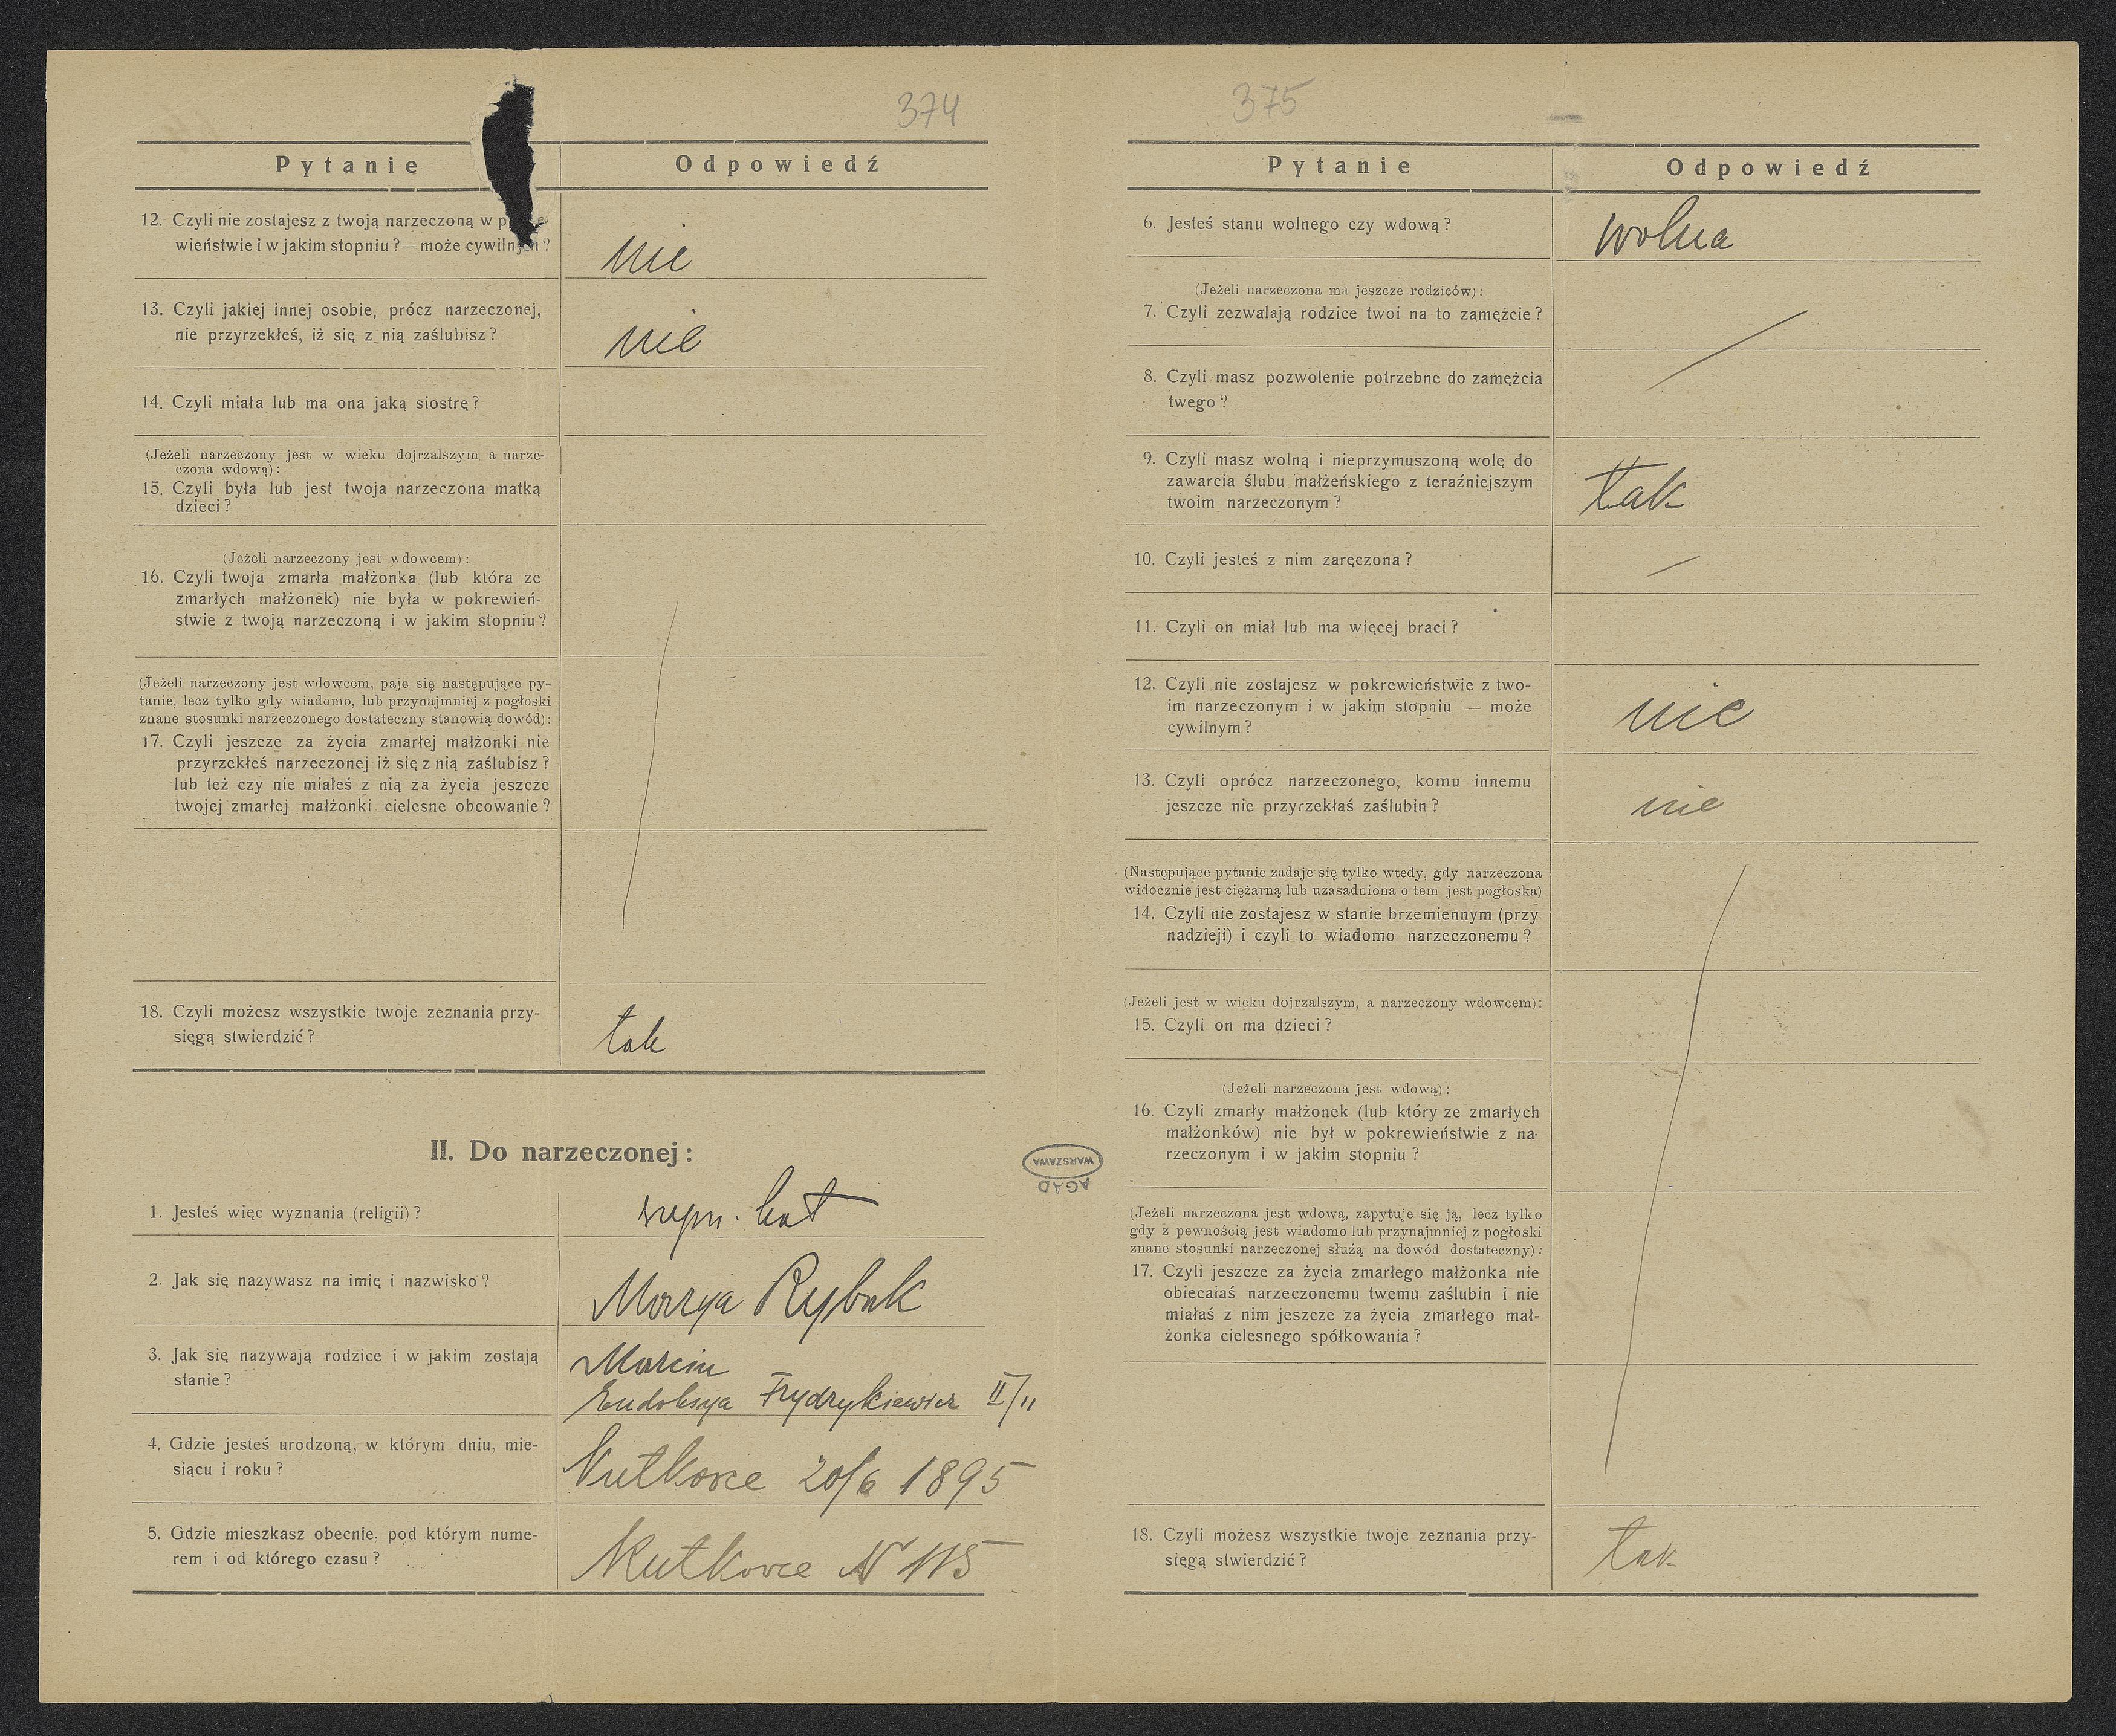 374
Pytanie Odpowiedź
12. Czyli nie zostajesz z twoją narzeczoną w
wieństwie i w jakim stopniu?—może cywilnym?
nie
13. Czyli jakiej innej osobie, prócz narzeczonej,
nie przyrzekłeś, iż się z nią zaślubisz?
nie
14. Czyli miała lub ma ona jaką siostrę?
(Jeżeli narzeczony jest w wieku dojrzalszym a narze-
czona wdową):
15. Czyli była lub jest twoja narzeczona matką
dzieci?
(Jeżeli narzeczony jest wdowcem):
16. Czyli twoja zmarła małżonka (lub która ze
zmarłych małżonek) nie była w pokrewień-
stwie z twoją narzeczoną i w jakim stopniu?
(Jeżeli narzeczony jest wdowcem, paje się następujące py-
tanie, lecz tylko gdy wiadomo, lub przynajmniej z pogłoski
znane stosunki narzeczonego dostateczny stanowią dowód):
17. Czyli jeszcze za życia zmarłej małżonki nie
przyrzekłeś narzeczonej iż się z nią zaślubisz?
lub też czy nie miałeś z nią za życia jeszcze
twojej zmarłej małżonki cielesne obcowanie?
18. Czyli możesz wszystkie twoje zeznania przy-
sięgą stwierdzić?
tak
II. Do narzeczonej:
1. Jesteś więc wyznania (religii)?
rzym. kat
2. Jak się nazywasz na imię i nazwisko?
Marya Rybak
3. Jak się nazywają rodzice i w jakim zostają
stanie?
Marcin
Eudoksya Frydrykiewicz II/11
4. Gdzie jesteś urodzoną, w którym dniu, mie-
siącu i roku?
Kutkovce 20/6 1895
5. Gdzie mieszkasz obecnie, pod którym nume-
rem i od którego czasu?
Kutkovce N 115
AGAD
WARSZAWA
375
Pytanie Odpowiedź
6. Jesteś stanu wolnego czy wdową?
wolna
(Jeżeli narzeczona ma jeszcze rodziców):
7. Czyli zezwalają rodzice twoi na to zamęzcie?
8. Czyli masz pozwolenie potrzebne do zamężcia
twego?
9. Czyli masz wolną i nieprzymuszoną wolę do
zawarcia ślubu małżeńskiego z teraźniejszym
twoim narzeczonym?
tak
10. Czyli jesteś z nim zaręczona?
11. Czyli on miał lub ma więcej braci?
12. Czyli nie zostajesz w pokrewieństwie z two-
im narzeczonym i w jakim stopniu — może
cywilnym?
nie
13. Czyli oprócz narzeczonego, komu innemu
jeszcze nie przyrzekłaś zaślubin?
nie
(Następujące pytanie zadaje się tylko wtedy, gdy narzeczona
widocznie jest ciężarną lub uzasadniona o tem jest pogłoska)
14. Czyli nie zostajesz w stanie brzemiennym (przy
nadzieji) i czyli to wiadomo narzeczonemu?
(Jeżeli jest w wieku dojrzalszym, a narzeczony wdowcem):
15. Czyli on ma dzieci?
(Jeżeli narzeczona jest wdową):
16. Czyli zmarły małżonek (lub który ze zmarłych
małżonków) nie był w pokrewieństwie z na-
rzeczonym i w jakim stopniu?
(Jeżeli narzeczona jest wdową, zapytuje się ją, lecz tylko
gdy z pewnością jest wiadomo lub przynajmniej z pogłoski
znane stosunki narzeczonej służą na dowód dostateczny):
17. Czyli jeszcze za życia zmarłego małżonka nie
obiecałaś narzeczonemu twemu zaślubin i nie
miałaś z nim jeszcze za życia zmarłego mał-
żonka cielesnego spółkowania?
18. Czyli możesz wszystkie twoje zeznania przy-
sięgą stwierdzić?
tak